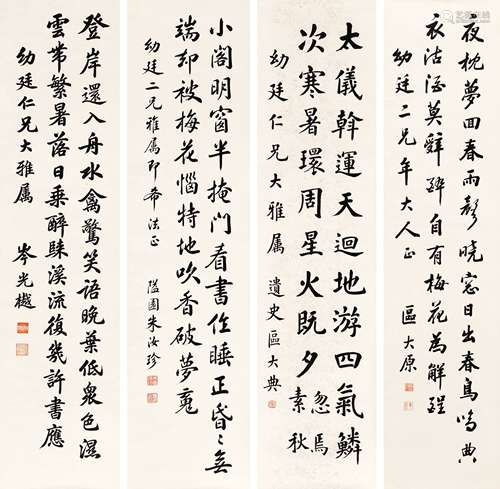 夜枕夢回春雨聲曉窓日出春鳥鳴典
衣沽酒莫辭醉自有梅花為解酲
幼廷二兄年大人正 區大原
太儀斡運天迴地游四氣鱗
次寒暑環周星火既夕忽焉素秋
幼廷仁兄大雅属 遺史區大典
小閣明窗半掩門看書作睡正昏〻無
端却被梅花惱特地吹香破夢魂
幼廷二兄雅属即希法正 隘園朱汝珍
登岸還入舟水禽驚笑語晚葉低衆色濕
雲带繁暑落日乘醉歸溪流復幾許書應
幼廷仁兄大雅属 岑光樾